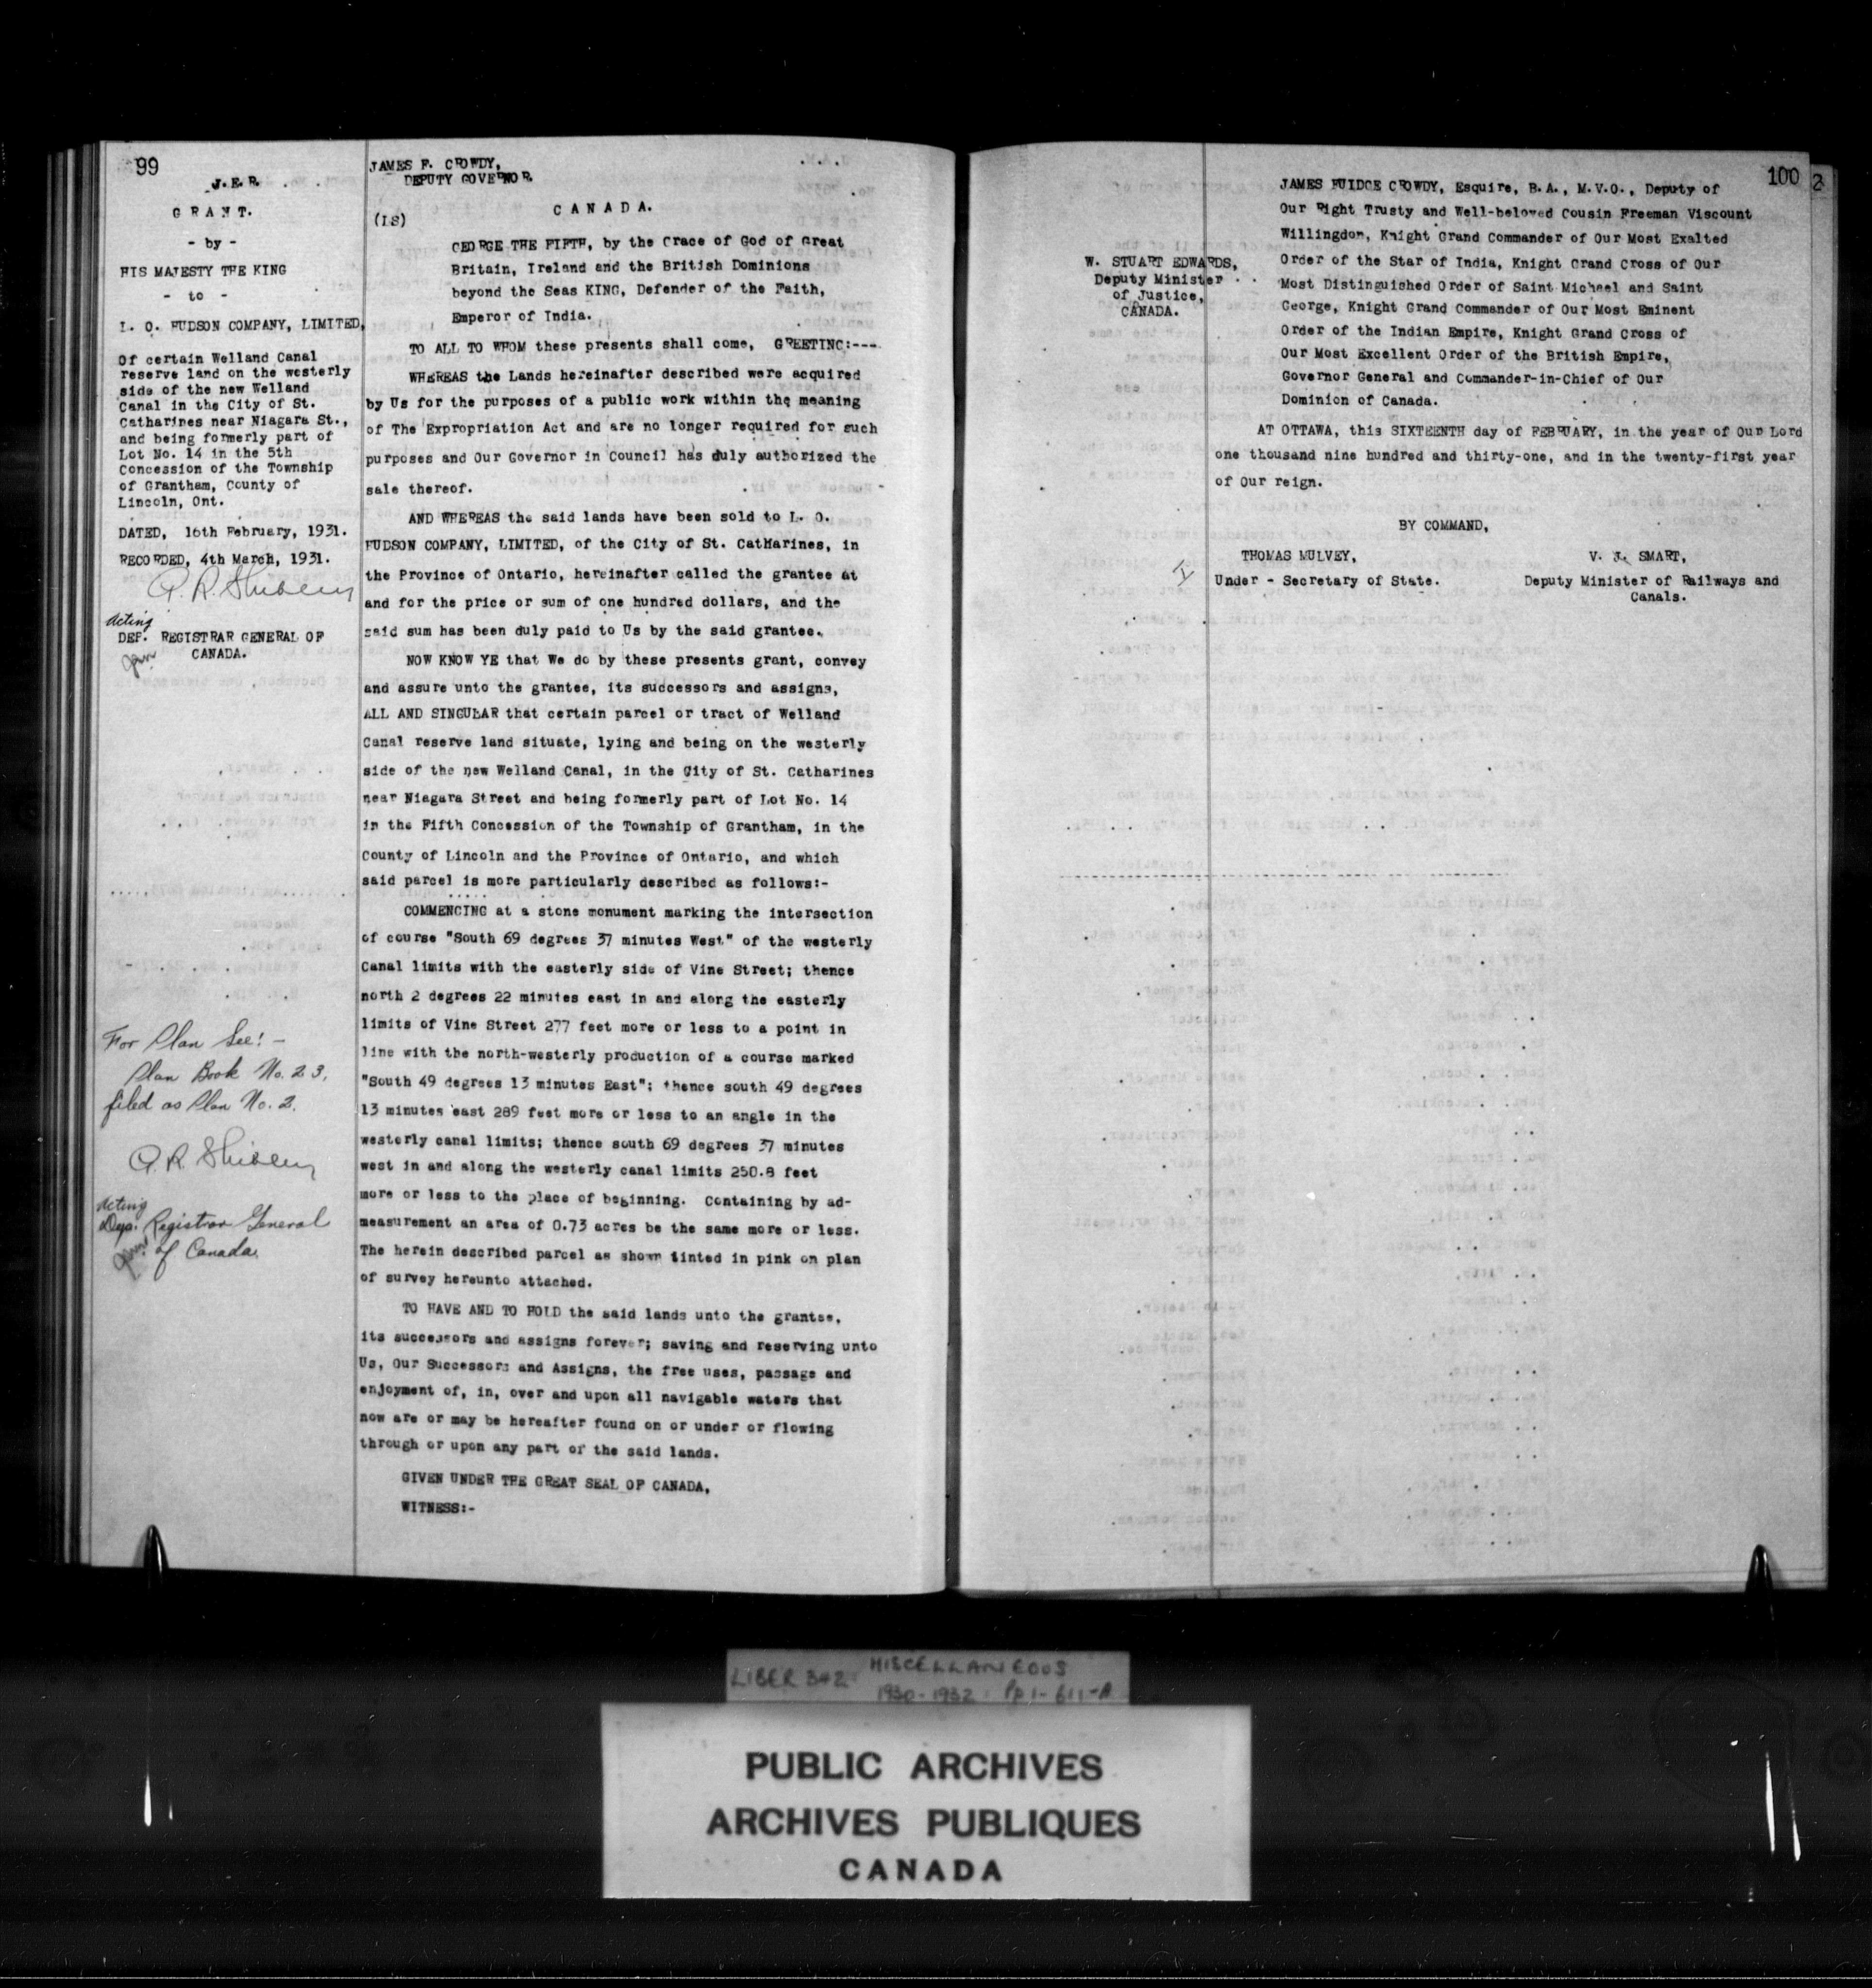 99
J.E.R.
GRANT.
- by -
HIS MAJESTY THE KING
- to -
L. O. HUDSON COMPANY, LIMITED,
Of certain Welland Canal
reserve land on the westerly
side of the new Welland
Canal in the City of St.
Catharines near Niagara St.,
and being formerly part of
Lot No. 14 in the 5th
Concession of the Township
of Grantham, County of
Lincoln, Ont.
DATED, 16th February, 1931.
RECORDED, 4th March, 1931.
Acting
DEP. REGISTRAR GENERAL OF
CANADA.
For Plan See! -
Plan Book No. 23,
filed as Plan No. 2.
Acting
Dep. Registrar General
of Canada.
JAMES F. CROWDY,
DEPUTY GOVERNOR.
CANADA.
(LS)
GEORGE THE FIFTH, by the Grace of God of Great
Britain, Ireland and the British Dominions
beyond the Seas KING, Defender of the Faith,
Emperor of India.
TO ALL TO WHOM these presents shall come, GREETING:---
WHEREAS the Lands hereinafter described were acquired
by Us for the purposes of a public work within the meaning
of The Expropriation Act and are no longer required for such
purposes and Our Governor in Council has duly authorized the
sale thereof.
AND WHEREAS the said lands have been sold to L. O.
HUDSON COMPANY, LIMITED, of the City of St. Catharines, in
the Province of Ontario, hereinafter called the grantee at
and for the price or sum of one hundred dollars, and the
said sum has been duly paid to Us by the said grantee.
NOW KNOW YE that We do by these presents grant, convey
and assure unto the grantee, its successors and assigns,
ALL AND SINGULAR that certain parcel or tract of Welland
Canal reserve land situate, lying and being on the westerly
side of the new Welland Canal, in the City of St. Catharines
near Niagara Street and being formerly part of Lot No. 14
in the Fifth Concession of the Township of Grantham, in the
County of Lincoln and the Province of Ontario, and which
said parcel is more particularly described as follows:-
COMMENCING at a stone monument marking the intersection
of course "South 69 degrees 37 minutes West" of the westerly
Canal limits with the easterly side of Vine Street; thence
north 2 degrees 22 minutes east in and along the easterly
limits of Vine Street 277 feet more or less to a point in
line with the north-westerly production of a course marked
"South 49 degrees 13 minutes East"; thence south 49 degrees
13 minutes east 289 feet more or less to an angle in the
westerly canal limits; thence south 69 degrees 37 minutes
west in and along the westerly canal limits 250.8 feet
more or less to the place of beginning. Containing by ad-
measurement an area of 0.73 acres be the same more or less.
The herein described parcel as shown tinted in pink on plan
of survey hereunto attached.
TO HAVE AND TO HOLD the said lands unto the grantee,
its successors and assigns forever; saving and reserving unto
Us, Our Successors and Assigns, the free uses, passage and
enjoyment of, in, over and upon all navigable waters that
now are or may be hereafter found on or under or flowing
through or upon any part of the said lands.
GIVEN UNDER THE GREAT SEAL OF CANADA,
WITNESS:-
100
2
W. STUART EDWARDS,
Deputy Minister
of Justice,
CANADA.
JAMES FUIDGE CROWDY, Esquire, B.A., M.V.O., Deputy of
Our Right Trusty and Well-beloved Cousin Freeman Viscount
Willingdon, Knight Grand Commander of Our Most Exalted
Order of the Star of India, Knight Grand Cross of Our
Most Distinguished Order of Saint Michael and Saint
George, Knight Grand Commander of Our Most Eminent
Order of the Indian Empire, Knight Grand Cross of
Our Most Excellent Order of the British Empire,
Governor General and Commander-in-Chief of Our
Dominion of Canada.
AT OTTAWA, this SIXTEENTH day of FEBRUARY, in the year of Our Lord
one thousand nine hundred and thirty-one, and in the twenty-first year
of Our reign.
BY COMMAND,
THOMAS MULVEY,
Under - Secretary of State.
V. I. SMART,
Deputy Minister of Railways and
Canals.
LIBER 342 MISCELLANEOUS
1930-1932 Pp 1-611-A
PUBLIC ARCHIVES
ARCHIVES PUBLIQUES
CANADA